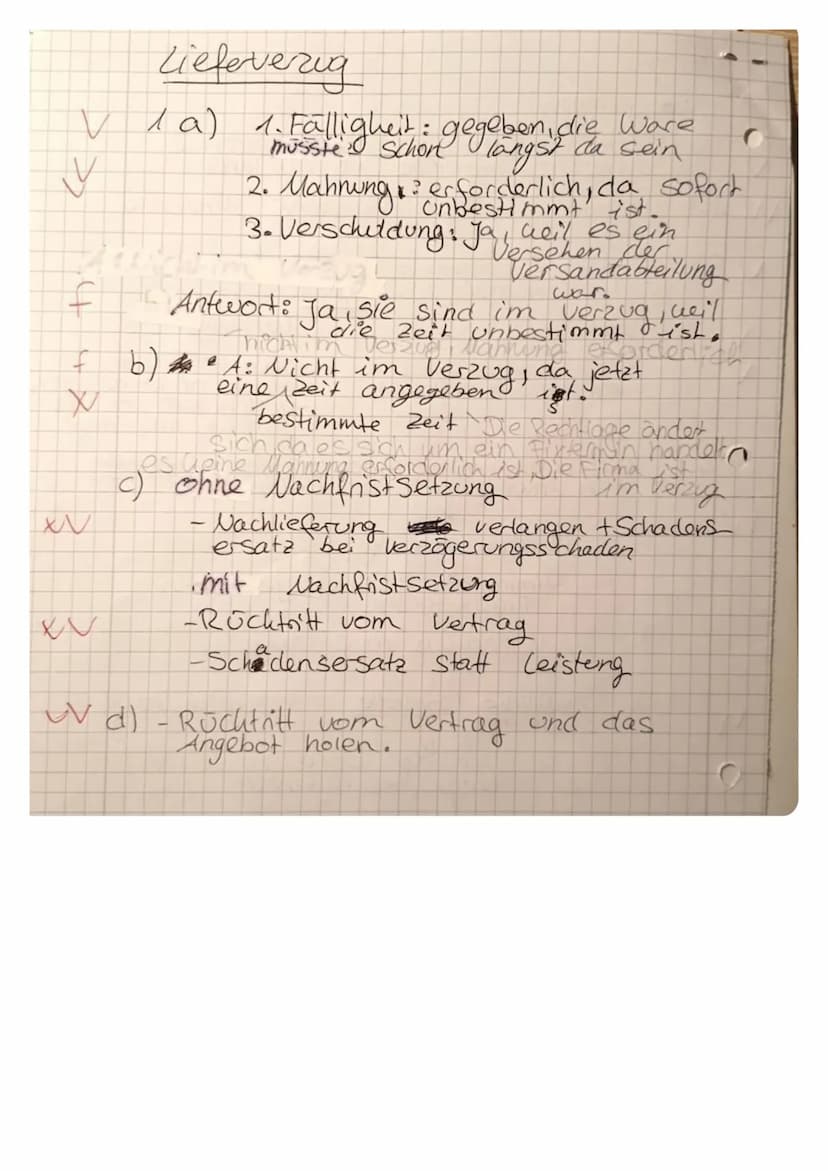 Lieferverzug
V 1 a) 1. Fälligkeit: gegeben, die Ware
müsste schon längst da sein
V
V 2. Mahnung: erforderlich, da sofort
unbestimmt ist.
3. Verschuldung: Ja, weil es ein
Versehen der
Versandabteilung
war.
f Antwort: Ja, sie sind im Verzug, weil
die Zeit unbestimmt ist.
nicht im Verzug, Mahnung erforderlich
f b) A: Nicht im Verzug, da jetzt
eine Zeit angegeben ist.
X
bestimmte Zeit Die Rechtlage ändert
sich, da es sich um ein Fixtermin handelt
es keine Mahnung erforderlich ist, Die Firma ist
im Verzug
c) ohne Nachfristsetzung
XV - Nachlieferung verlangen + Schadens
ersatz bei Verzögerungsschaden
mit Nachfristsetzung
XV - Rücktritt vom Vertrag
- Schadensersatz statt Leistung
VV d) - Rücktritt vom Vertrag und das
Angebot holen.